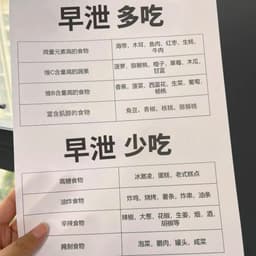 早泄 多吃
微量元素高的食物
海带、木耳、鱼肉、红枣、生蚝、
牛肉
维C含量高的蔬果
菠萝、猕猴桃、橙子、草莓、木瓜、
甘蓝
维B含量高的食物
香蕉、菠菜、西蓝花、生菜、葡萄、
杨桃
富含肌醇的食物
青豆、香椿、核桃、猕猴桃
早泄 少吃
高糖食物
冰激凌、蛋糕、老式糕点
油炸食物
炸鸡、烧烤、薯条、炸串、油条
辛辣食物
辣椒、大葱、花椒、生姜、烟、酒、
胡椒等
腌制食物
泡菜、腊肉、罐头、咸菜